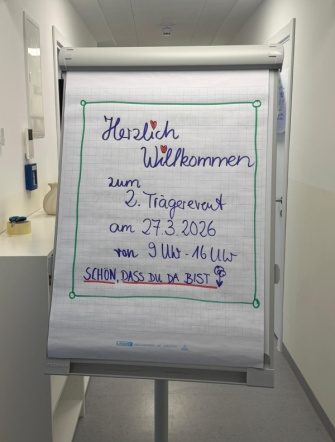 Herzlich
Willkommen
zum
2. Trägerevent
am 27.3.2026
von 9 Uhr - 16 Uhr
SCHÖN, DASS DU DA BIST